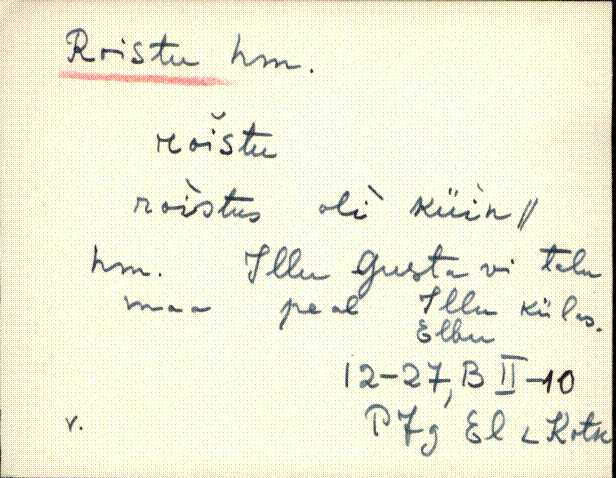 Roistu hm.
roi̬stu
roi̬stus oli̬ küi̬n //
hm. Illu Gusta vi talu
maa peal Illu külas.
Elbu
12-27, B II-10
P7g El < Kotk
v.